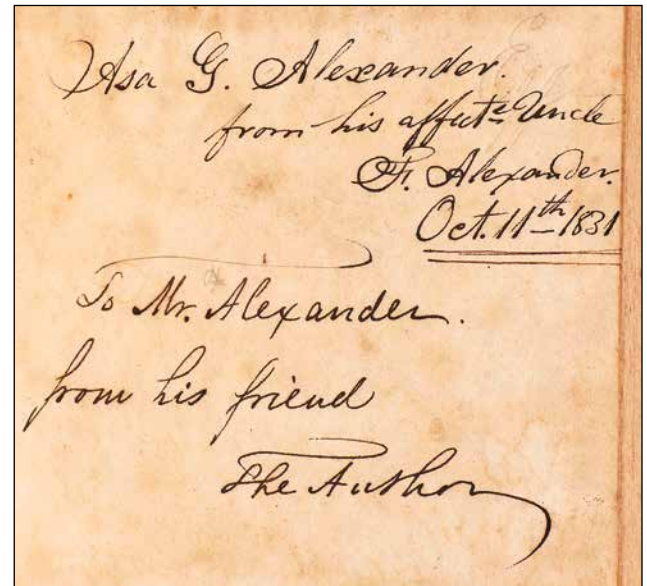 Asa G. Alexander.
from his affecte Uncle
F. Alexander.
Oct. 11th 1831
To Mr. Alexander.
from his friend
The Author